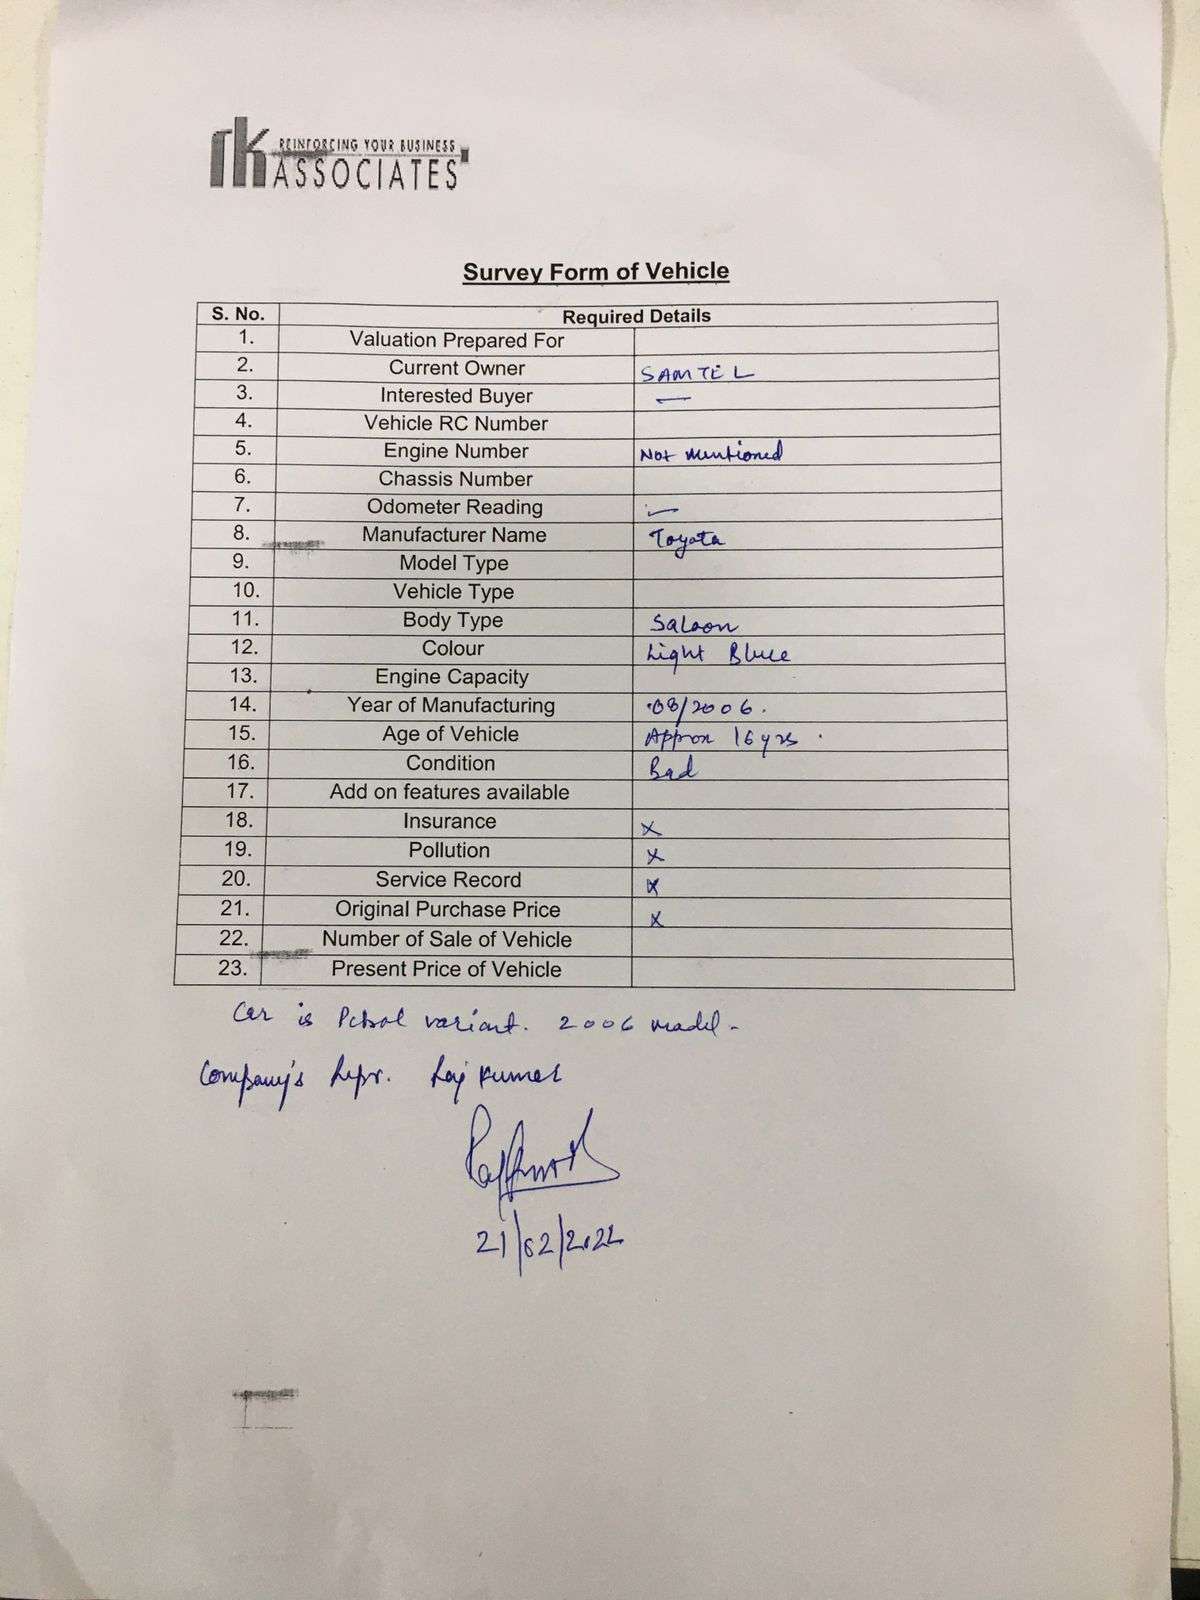 rk REINFORCING YOUR BUSINESS
ASSOCIATES
Survey Form of Vehicle
S. No. Required Details
1. Valuation Prepared For
2. Current Owner SAMTEL
3. Interested Buyer —
4. Vehicle RC Number
5. Engine Number Not mentioned
6. Chassis Number
7. Odometer Reading —
8. Manufacturer Name Toyata
9. Model Type
10. Vehicle Type
11. Body Type Saloon
12. Colour Light Blue
13. Engine Capacity
14. Year of Manufacturing 08/2006.
15. Age of Vehicle Approx 16 yrs.
16. Condition Bad
17. Add on features available
18. Insurance x
19. Pollution x
20. Service Record x
21. Original Purchase Price x
22. Number of Sale of Vehicle
23. Present Price of Vehicle
Car is Petrol variant. 2006 model -
Company's Repr. Raj Kumar
21/02/2022